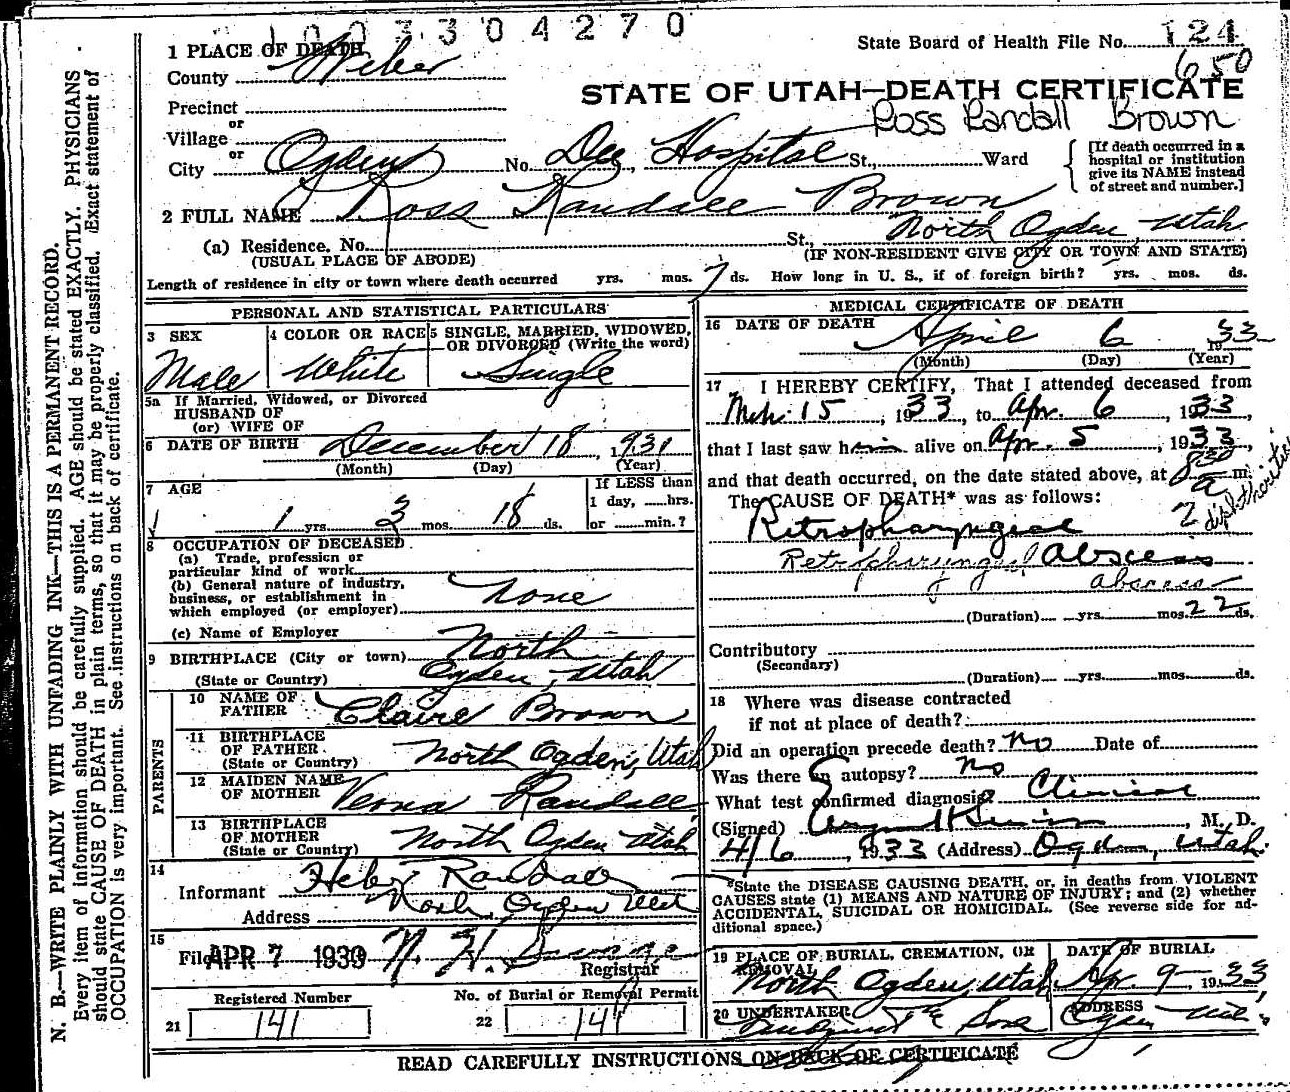 1003304270
State Board of Health File No. 124
650
1 PLACE OF DEATH
County Weber
STATE OF UTAH—DEATH CERTIFICATE
Precinct
or
Ross Randall Brown
Village
or
City Ogden No. Dee Hospital St., Ward
[If death occurred in a hospital or institution give its NAME instead of street and number.]
2 FULL NAME Ross Randall Brown
(a) Residence. No. St., North Ogden, Utah
(USUAL PLACE OF ABODE) (IF NON-RESIDENT GIVE CITY OR TOWN AND STATE)
Length of residence in city or town where death occurred yrs. mos. 7 ds. How long in U. S., if of foreign birth? yrs. mos. ds.
PERSONAL AND STATISTICAL PARTICULARS
3 SEX 4 COLOR OR RACE 5 SINGLE, MARRIED, WIDOWED, OR DIVORCED (Write the word)
Male White Single
5a If Married, Widowed, or Divorced
HUSBAND OF
(or) WIFE OF
6 DATE OF BIRTH December 18, 1931
(Month) (Day) (Year)
7 AGE If LESS than
1 day, hrs.
1 yrs. 3 mos. 18 ds. or min.?
8 OCCUPATION OF DECEASED
(a) Trade, profession or
particular kind of work
(b) General nature of industry,
business, or establishment in
which employed (or employer) None
(c) Name of Employer
9 BIRTHPLACE (City or town) North
(State or Country) Ogden, Utah
PARENTS
10 NAME OF FATHER Claire Brown
11 BIRTHPLACE OF FATHER (State or Country) North Ogden, Utah
12 MAIDEN NAME OF MOTHER Verna Randall
13 BIRTHPLACE OF MOTHER (State or Country) North Ogden Utah
14
Informant Heber Randall
Address North Ogden Utah
15
Filed APR 7 1933 N. H.
Registrar
Registered Number No. of Burial or Removal Permit
21 141 22 141
MEDICAL CERTIFICATE OF DEATH
16 DATE OF DEATH April 6 1933
(Month) (Day) (Year)
17 I HEREBY CERTIFY, That I attended deceased from
Mch. 15, 1933, to Apr. 6, 1933,
that I last saw him alive on Apr. 5, 1933,
and that death occurred, on the date stated above, at 8 30 a m.
The CAUSE OF DEATH* was as follows:
Retropharyngeal
abscess
Retropharyngeal
abscess
(Duration) yrs. mos. 22 ds.
Contributory
(Secondary)
(Duration) yrs. mos. ds.
18 Where was disease contracted
if not at place of death?
Did an operation precede death? no Date of
Was there an autopsy? no
What test confirmed diagnosis? Clinical
(Signed) M. D.
4/6, 1933 (Address) Ogden, Utah.
*State the DISEASE CAUSING DEATH, or, in deaths from VIOLENT
CAUSES state (1) MEANS AND NATURE OF INJURY; and (2) whether
ACCIDENTAL, SUICIDAL OR HOMICIDAL. (See reverse side for additional space.)
19 PLACE OF BURIAL, CREMATION, OR REMOVAL DATE OF BURIAL
North Ogden, Utah Apr. 9 1933
20 UNDERTAKER ADDRESS
Sons Ogden Utah
READ CAREFULLY INSTRUCTIONS ON BACK OF CERTIFICATE
N. B.—WRITE PLAINLY WITH UNFADING INK—THIS IS A PERMANENT RECORD.
Every item of information should be carefully supplied. AGE should be stated EXACTLY. PHYSICIANS
should state CAUSE OF DEATH in plain terms, so that it may be properly classified. Exact statement of
OCCUPATION is very important. See instructions on back of certificate.